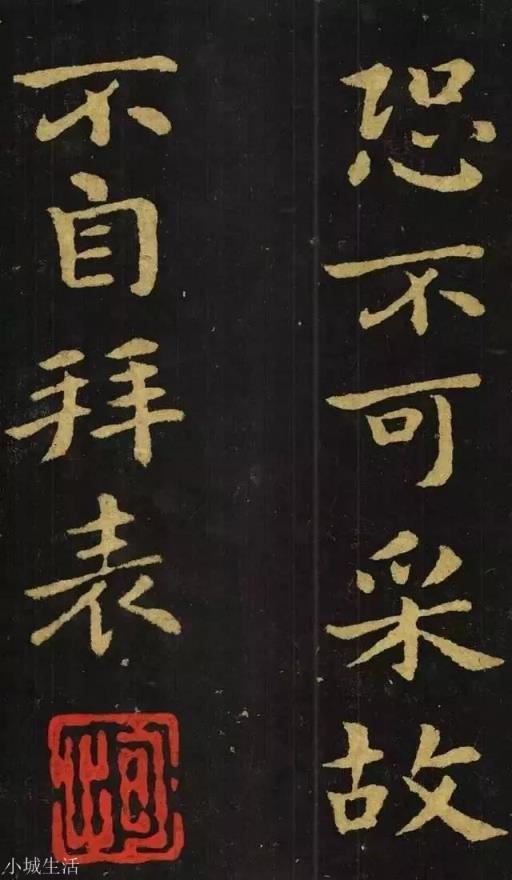 恐不可采故
不自拜表
小城生活